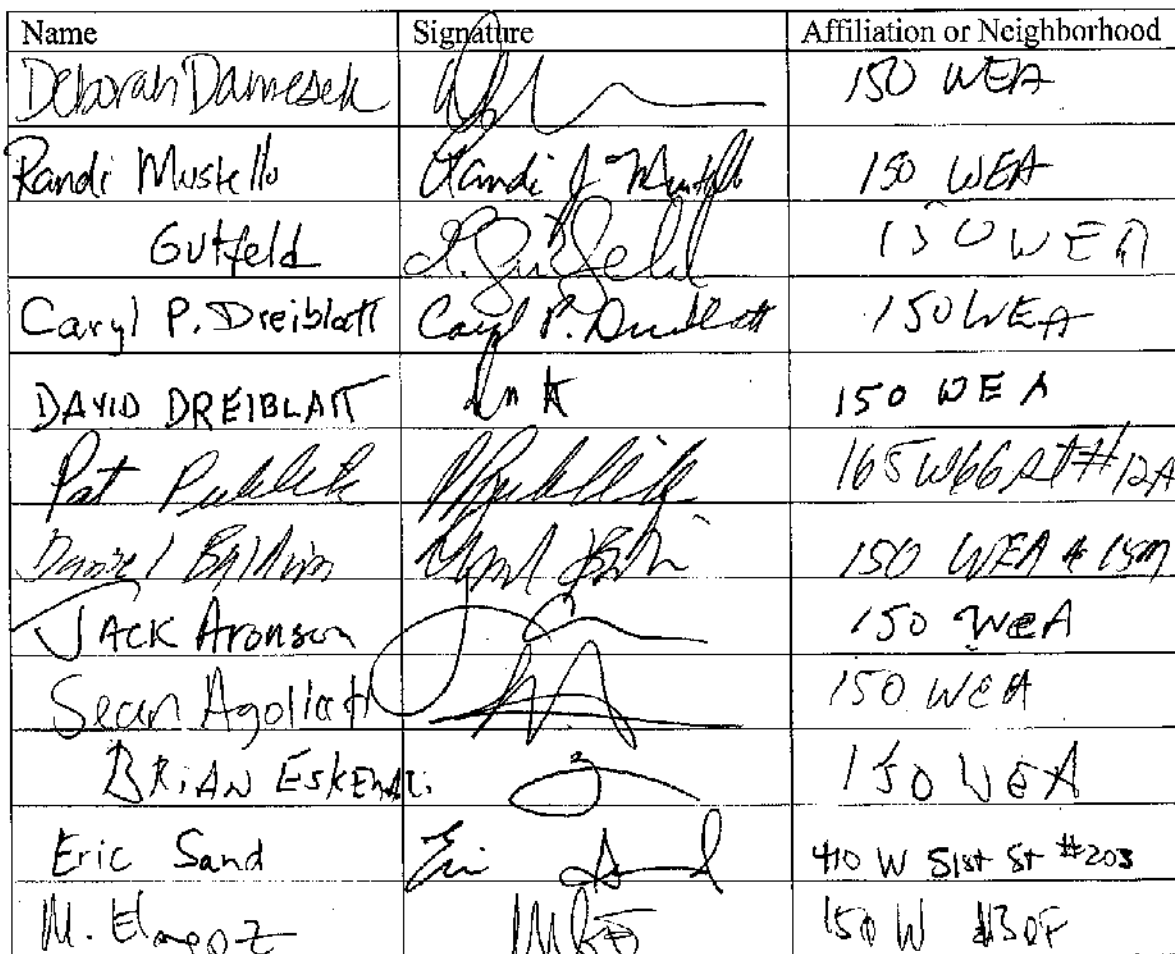 Name Signature Affiliation or Neighborhood
Deborah Damesek 150 WEA
Randi Mustello Randi J. Mustello 150 WEA
Gutfeld Gutfeld 150 WEA
Caryl P. Dreiblatt Caryl P. Dreiblatt 150 WEA
DAVID DREIBLATT 150 WEA
Pat 165 W 66 St #12A
Daniel Baldwin 150 WEA # 15M
JACK Aronson 150 WeA
Sean 150 WEA
BRiAN 150 WEA
Eric Sand Eric Sand 410 W 51st St #203
M. 150 W